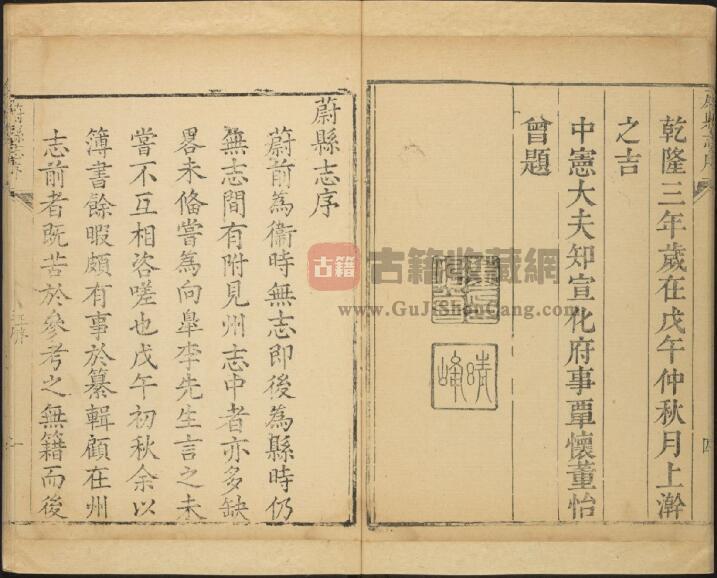 乾隆三年歲在戊午仲秋月上澣
之吉
中憲大夫知宣化府事覃懷董怡
曾題
晴
峰
蔚縣志序
蔚前為衞時無志即後為縣時仍
無志間有附見州志中者亦多缺
畧未備嘗為向臯李先生言之未
嘗不互相咨嗟也戊午初秋余以
簿書餘暇頗有事於纂輯顧在州
志前者既苦於參考之無籍而後
王序
一
四
古籍
古籍收藏網
www.GuJiShouCang.com